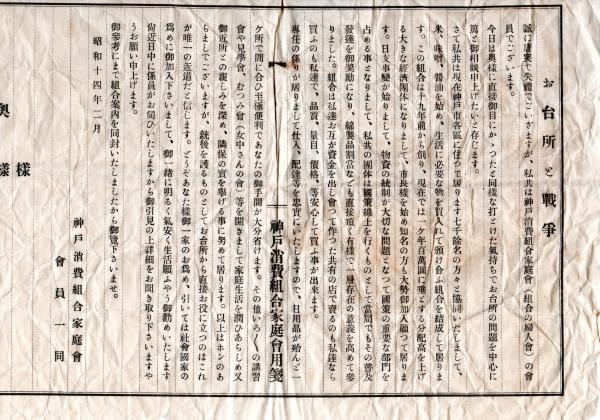 お台所と戰爭
誠に唐突で失禮でございますが、私共は神戸消費組合家庭會(組合の婦人會)の會
員でございます。
今日は奥樣に直接御目にかゝつたと同樣な打とけた氣持ちでお台所の問題を中心に
篤と御相談申上げたいと存じます。
さて私共は現在神戸市各區に住つて居ります七千餘名の方々と協同いたしまして、
米、味噌、醬油を始め、生活に必要な物を買入れて頒け合ふ組合を結成して居りま
す。この組合は十九年前から創り、現在では一ケ年百萬圓に垂とする分配高を上げ
る大きな經濟團体になりまして、市長樣を始め知名の方も大勢御加入願つて居りま
す。日支事變が始りまして、物資の統制が大切な問題となつて國策の重要な部門を
占める事となりまして、私共の團体は國策線上を行くものとして當局でもその普及
發達を御奬勵になり、綿製品割當なども直接頂く有樣で一層存在の意義を高めて參
りました。組合は私達お互が資金を出し會つて作つた共有の店で賣るのも私達なら
買ふのも私達で、品質、量目、價格、等安心して買ふ事が出來ます。
專任の係りが居りまして仕入、配達等を忠實にいたしますので、日用品が殆んど一
神戸消費組合家庭會用箋
ケ所で間に合ひ至極便利であなたの御手間が大分省けます。その他いろ〳〵の講習
會や見學會、むつみ會(女中さんの會)等を開きまして家庭生活を潤ひあらしめ又
御近所との親しみを深め、隣保の實を擧げる事に努めて居ります。以上はホンのあ
らましでございますが、銃後を護るものとしてお台所から直接お役に立つのはこれ
が唯一の近道だと信じます。どうぞあなた樣御一家のお爲め、引いては社會國家の
爲めに御加入下さいまして、御一緒に明るく氣安く生活願ふやう御勸めいたします
尙近日中に係員がお伺ひいたしますから御引見の上詳細をお聞き取り下さいますや
うお願い申上げます。
御參考にまで組合案內を同封いたしましたから御覽下さいませ。
昭和十四年二月
神戸消費組合家庭會
會員一同
奥樣
樣